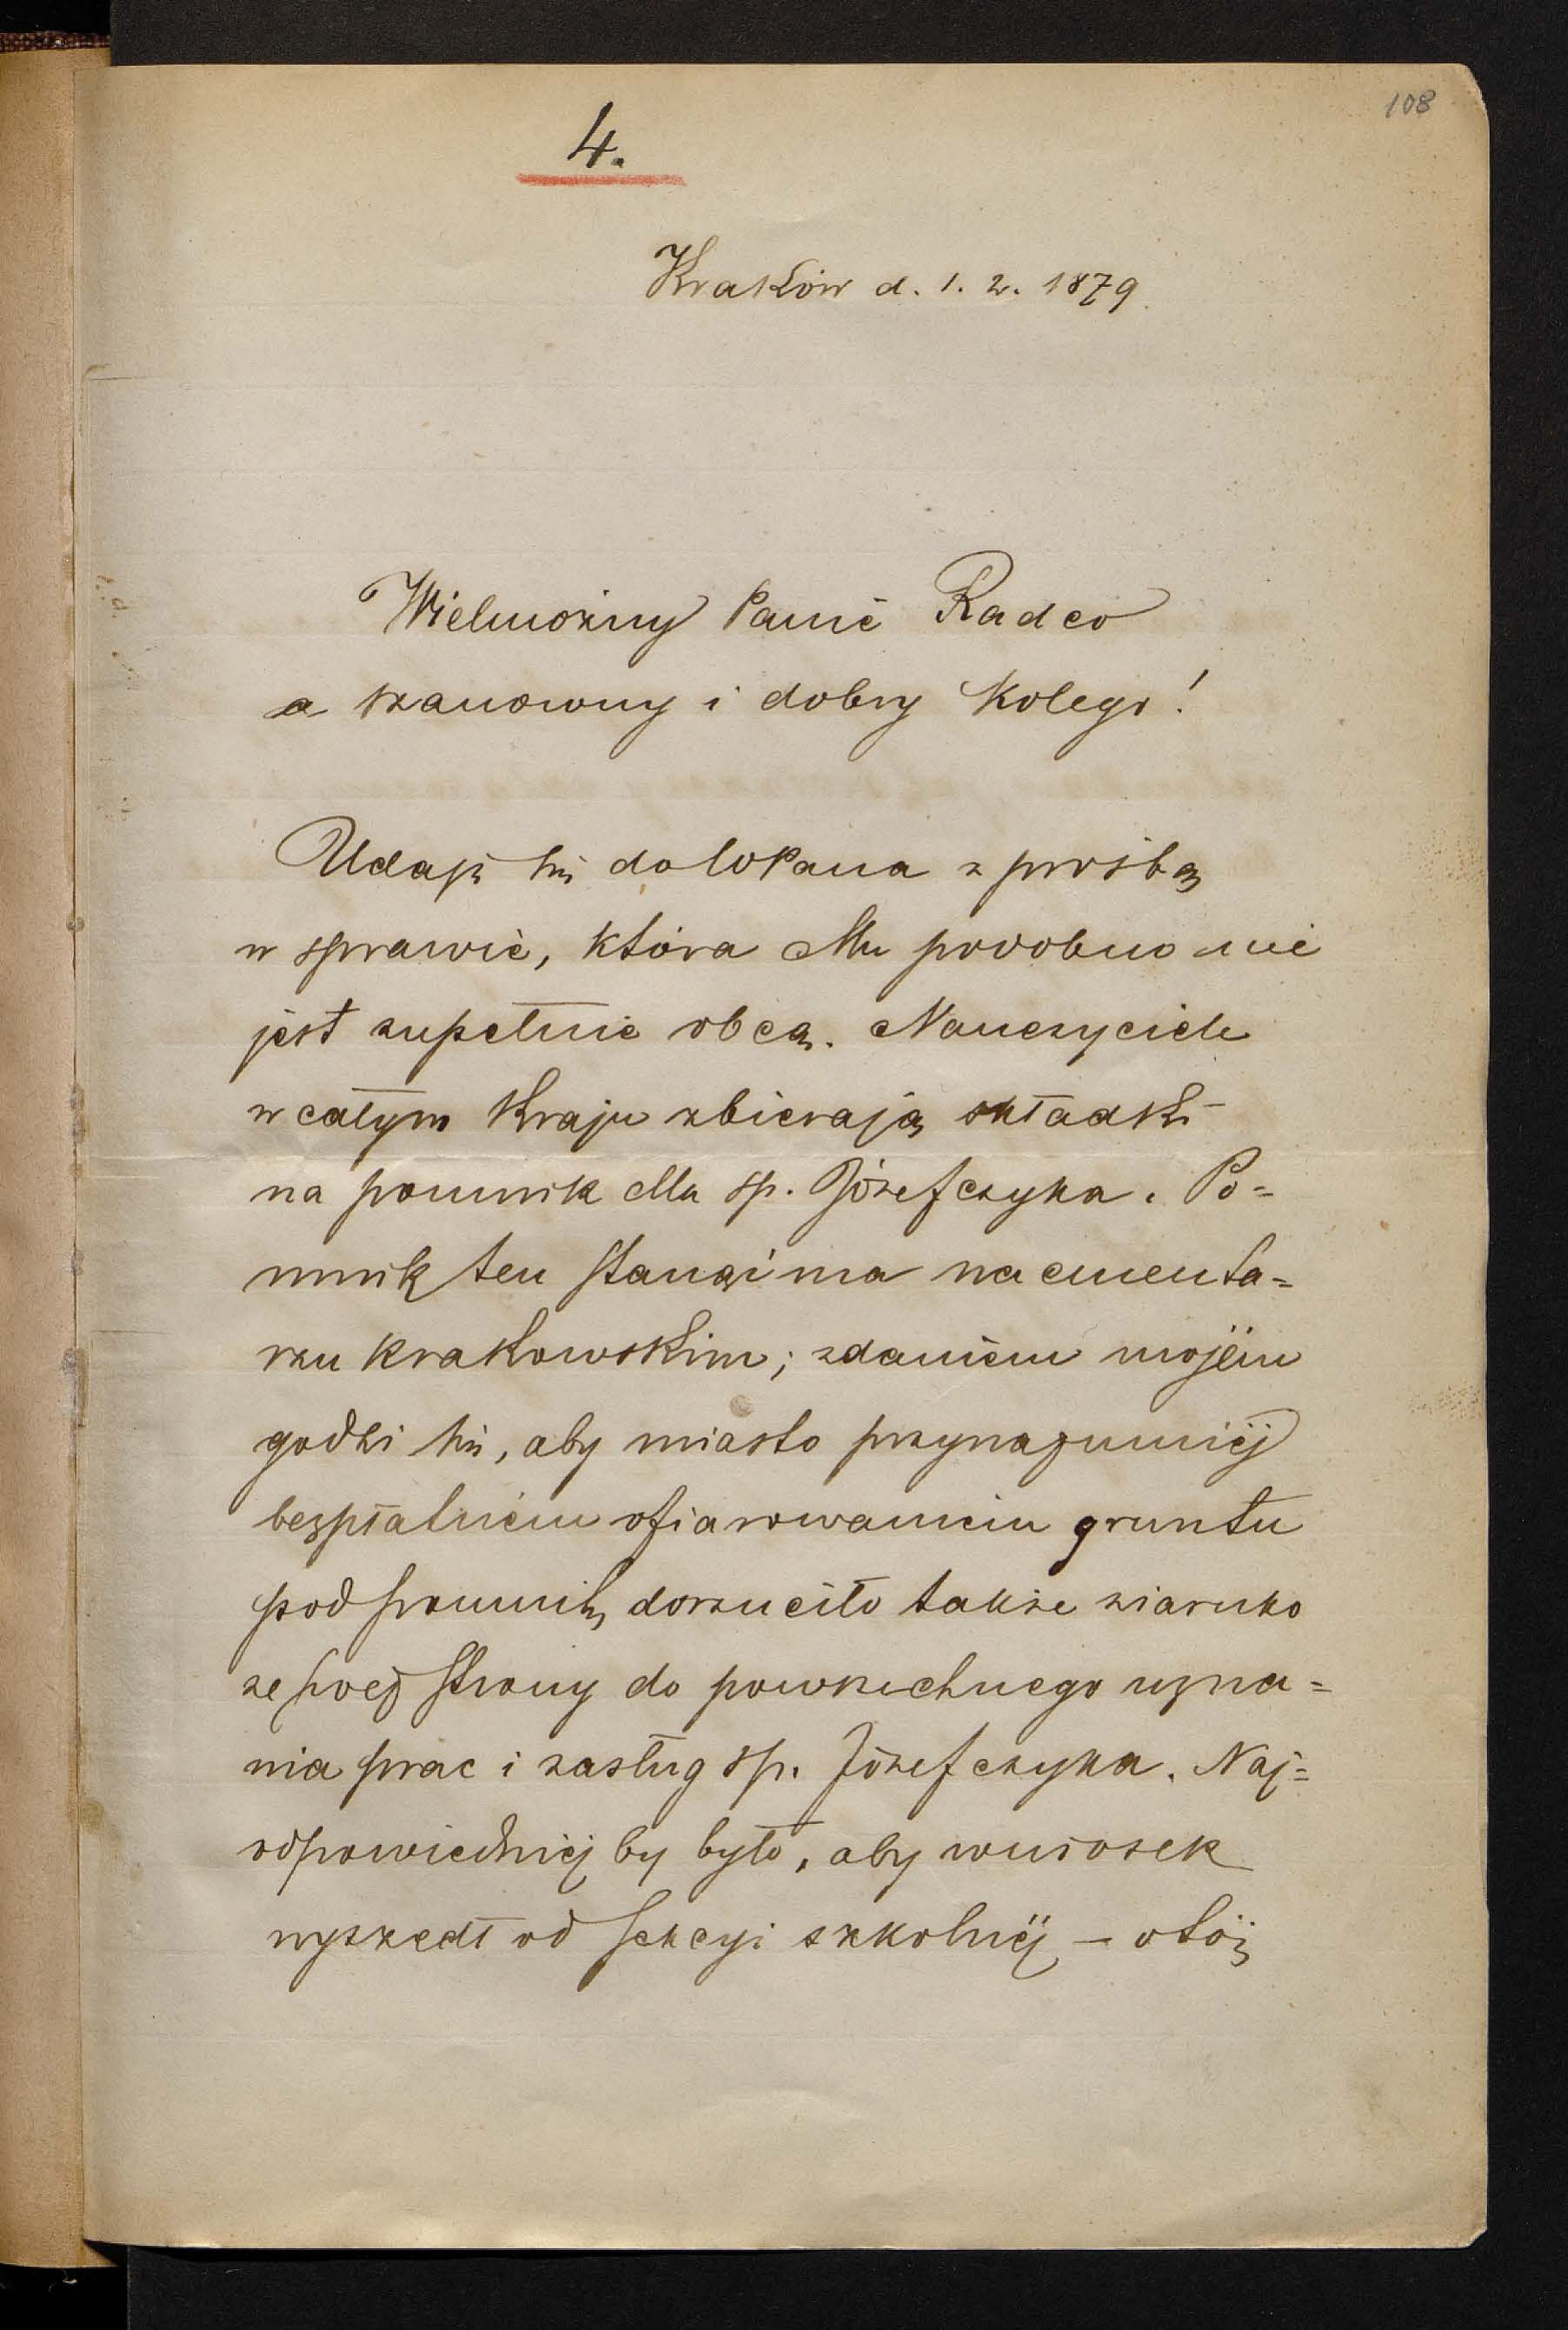 108
4.
Kraków d. 1. 2. 1879.
Wielmożny Panie Radco
a szanowny i dobry Kolego!
Udaję się do WPana z prośbą
w sprawie, która Mu podobno nie
jest zupełnie obcą. Nauczyciele
w całym kraju zbierają składki
na pomnik dla śp. Józefczyka. Po=
mnik ten stanąć ma na cmenta=
rzu krakowskim; zdaniem mojém
godzi się, aby miasto przynajmniéj
bezpłatniem ofiarowaniem gruntu
pod pomnik, dorzuciło także ziarnko
ze swej strony do powszechnego uzna=
nia prac i zasług śp. Józefczyka. Naj=
odpowiedniéj by było, aby wniosek
wyszedł od sekcyi szkolnéj – otóż